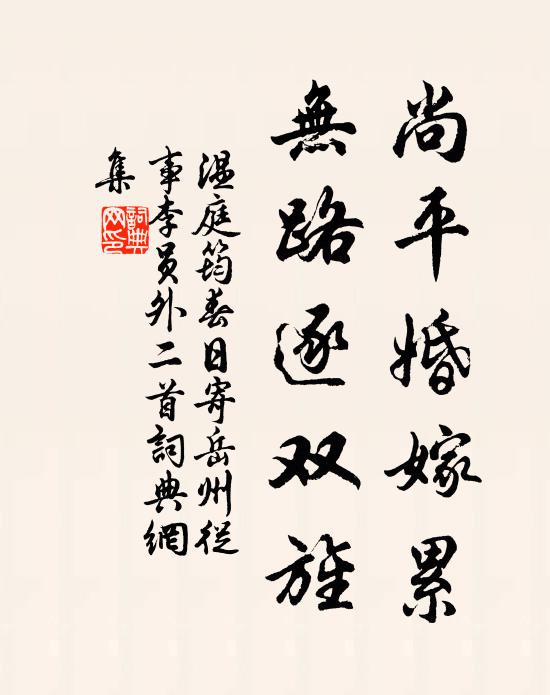 尚平婚嫁累
無路逐双旌
温庭筠春日寄岳州従
事李员外二首詞典網
集
詞典
网印